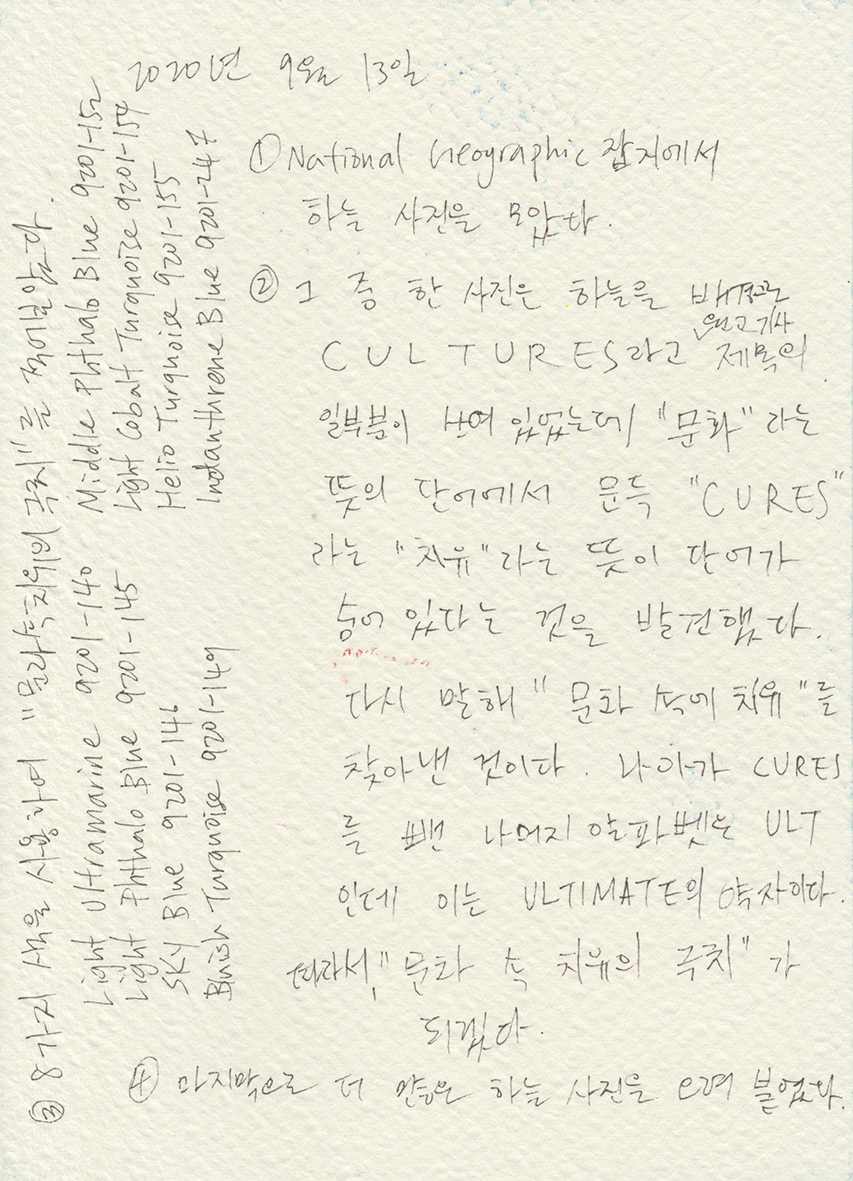 2020년 9월 13일
① National Geographic 잡지에서
하늘 사진을 모았다.
② 그 중 한 사진은 하늘을 배경으로
CULTURES라고 원고기사 제목의
일부분이 쓰여 있었는데 "문화"라는
뜻의 단어에서 문득 "CURES"
라는 "치유"라는 뜻이 단어가
숨어 있다는 것을 발견했다.
다시 말해 "문화 속에 치유"를
찾아낸 것이다. 나아가 CURES
를 뺀 나머지 알파벳은 ULT
인데 이는 ULTIMATE의 약자이다.
따라서, "문화 속 치유의 극치"가
되겠다.
③ 8가지 색을 사용하여 "문화속치유의 극치"를 찍어보았다.
Light Ultramarine 9201-140 Middle Phthalo Blue 9201-152
Light Phthalo Blue 9201-145 Light Cobalt Turquoise 9201-154
Sky Blue 9201-146 Helio Turquoise 9201-155
Bluish Turquoise 9201-149 Indanthrene Blue 9201-247
④ 마지막으로 더 많은 하늘 사진을 오려 붙였다.